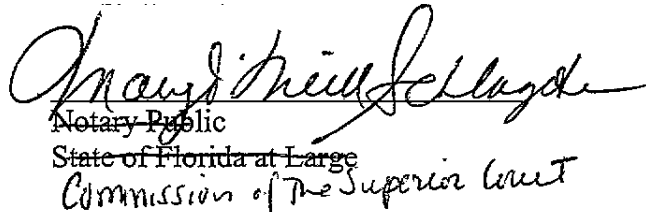 Mary O'Neill Schlagde
Notary Public
State of Florida at Large
Commission of The Superior Court